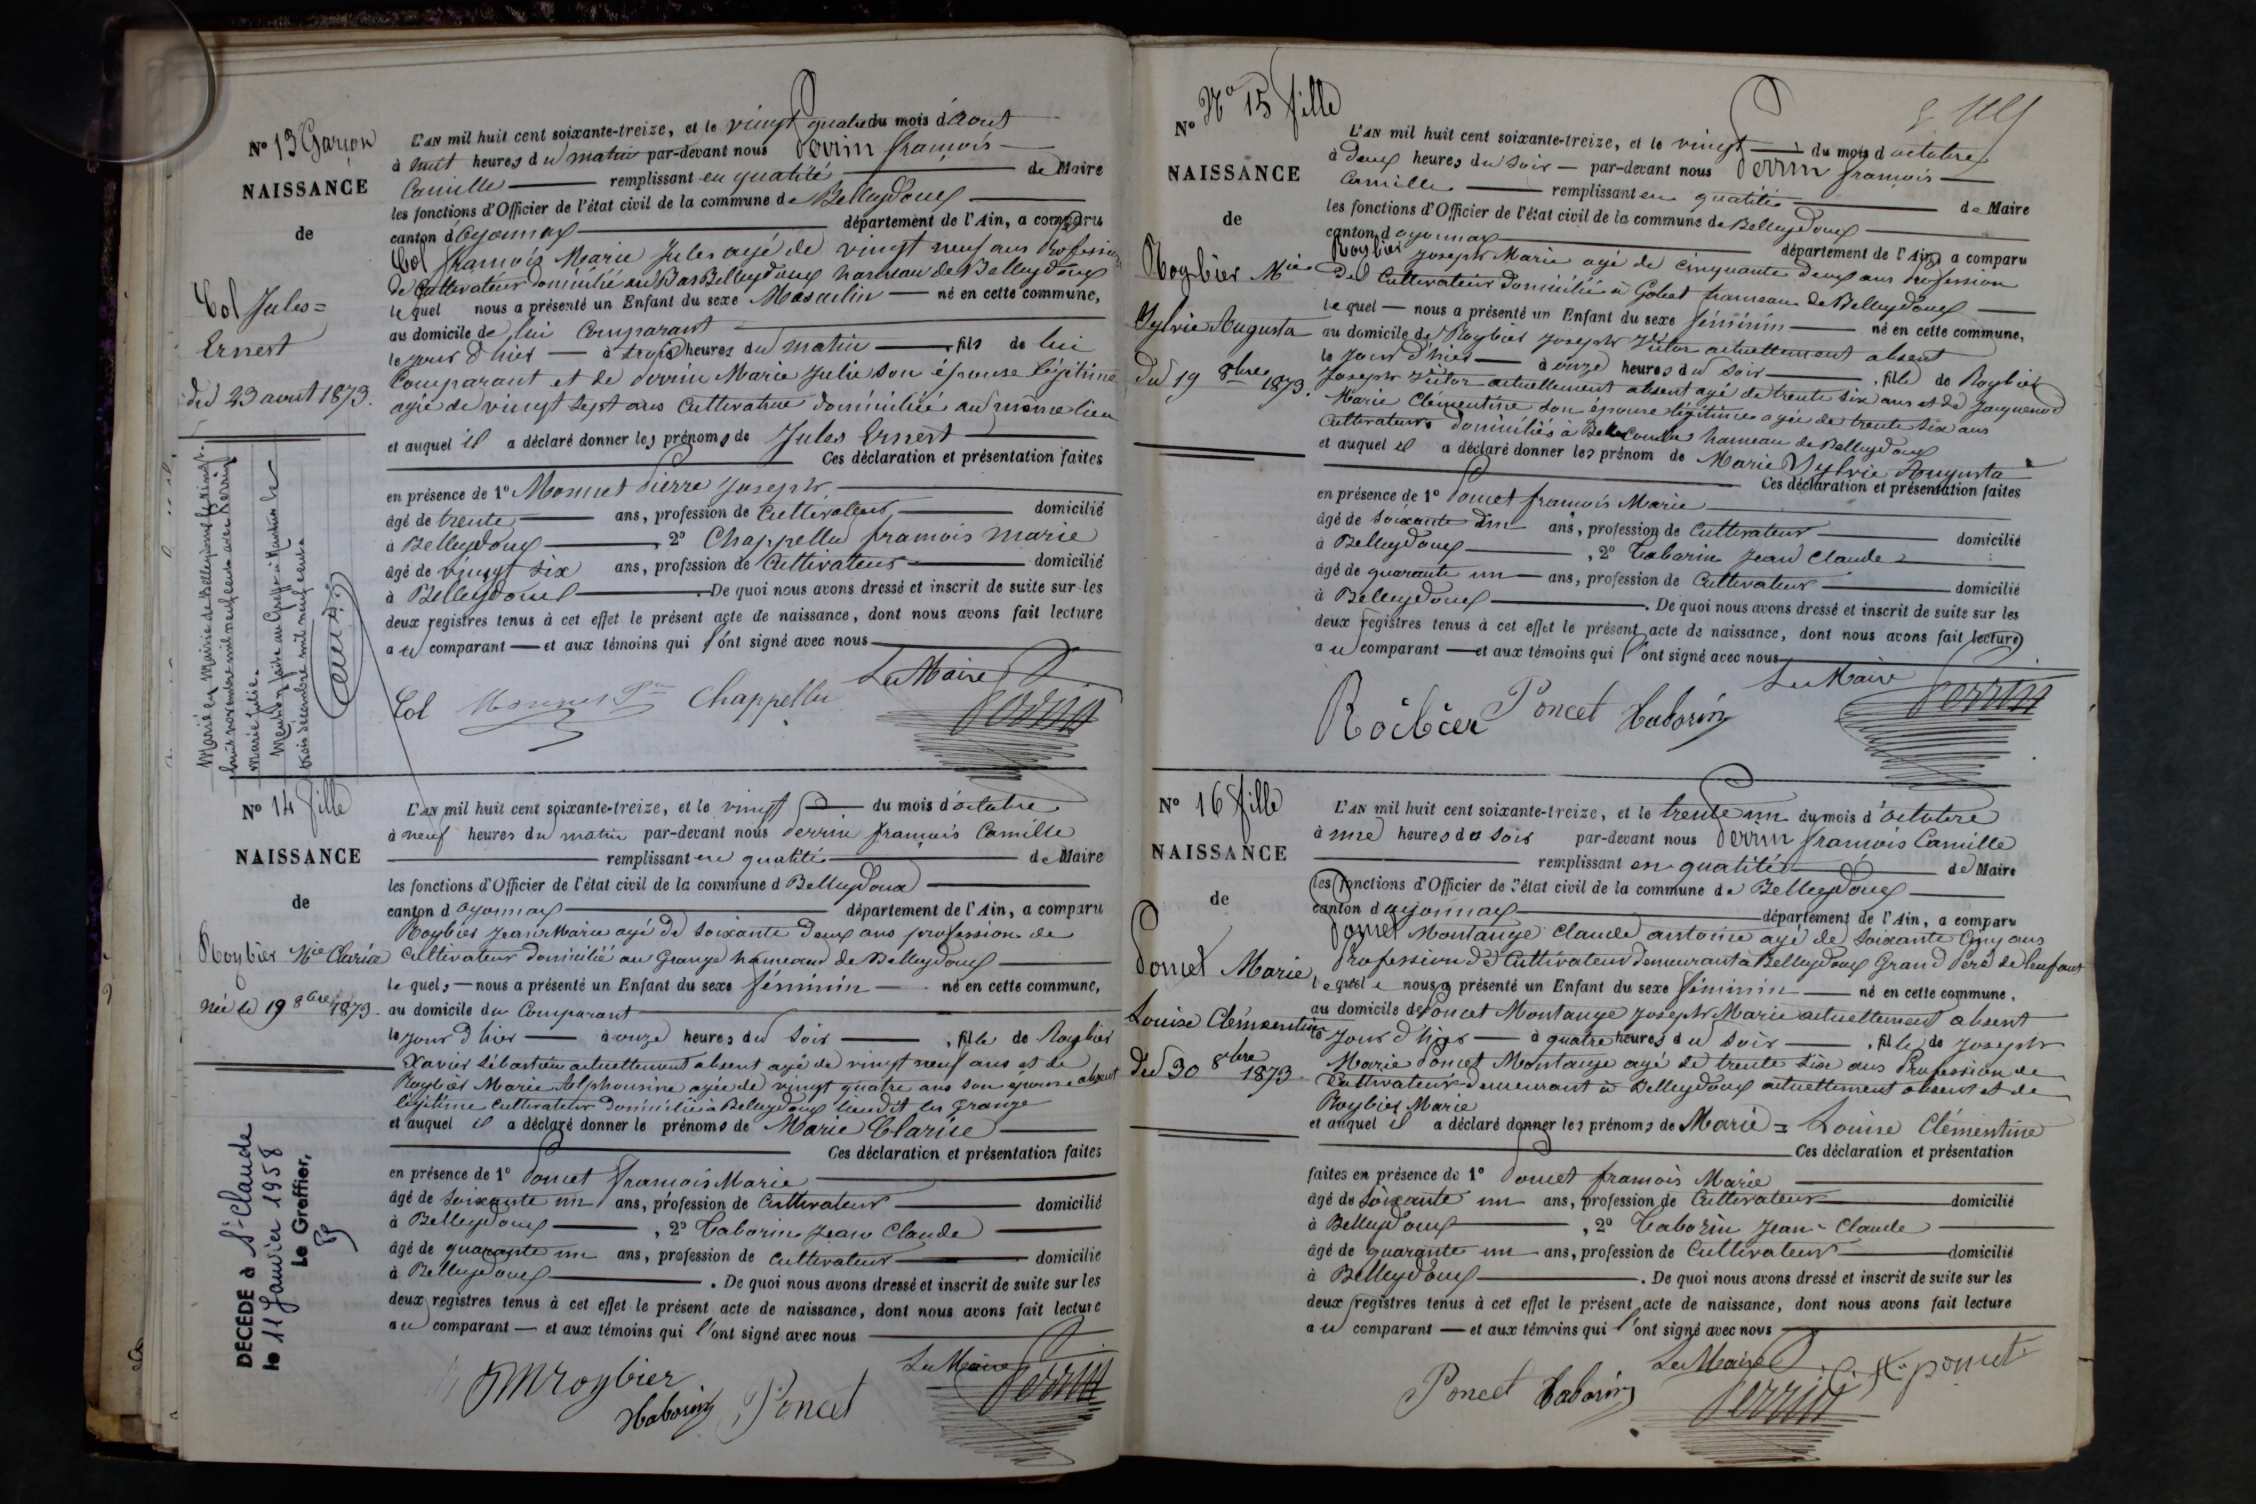 N° 13 Garçon
NAISSANCE
de
Col Jules=
Ernest
du 23 aout 1873.
L'AN mil huit cent soixante-treize, et le vingt quatre du mois d'Aout
à huit heures du matin par-devant nous Perrin françois
Camille remplissant en qualité de Maire
les fonctions d'Officier de l'état civil de la commune de Belleydoux
canton d'Oyonnax département de l'Ain, a comparu
Col françois Marie Jules agé de vingt neuf ans Profession
de Cultivateur domicilié au Bas Belleydoux hameau de Belleydoux
lequel nous a présenté un Enfant du sexe Masculin né en cette commune,
au domicile de lui Comparant
le jour d'hier à trois heures du matin fils de lui
Comparant et de Perrin Marie Julie son épouse légitime
agée de vingt sept ans Cultivatrice domiciliée au même lieu
et auquel il a déclaré donner les prénoms de Jules Ernest
Ces déclaration et présentation faites
en présence de 1° Monnet Pierre Joseph
âgé de trente ans, profession de Cultivateur domicilié
à Belleydoux, 2° Chappellu françois Marie
âgé de vingt six ans, profession de Cultivateur domicilié
à Belleydoux. De quoi nous avons dressé et inscrit de suite sur les
deux registres tenus à cet effet le présent acte de naissance, dont nous avons fait lecture
au comparant et aux témoins qui l'ont signé avec nous
Le Maire
Col Monnet Chappellu Perrin
Marié en Mairie de Bellegarde le vingt
huit novembre mil neuf cent avec Perrin
Marie Julie.
Mention faite au Greffe à Nantua le
trois décembre mil neuf cent
N° 14 fille
NAISSANCE
de
Roybier Mie Clarice
née le 19 8bre 1873.
DECEDE à St Claude
le 11 Janvier 1958
Le Greffier,
L'AN mil huit cent soixante-treize, et le vingt du mois d'octobre
à neuf heures du matin par-devant nous Perrin françois Camille
remplissant en qualité de Maire
les fonctions d'Officier de l'état civil de la commune d Belleydoux
canton d oyonnax département de l'Ain, a comparu
Roybier Jean Marie agé de soixante deux ans profession de
cultivateur domicilié au Grange hameau de Belleydoux
lequel, nous a présenté un Enfant du sexe féminin né en cette commune,
au domicile du Comparant
le jour d'hier à onze heures du soir, fille de Roybier
Xavier Sébastien actuellement absent agé de vingt neuf ans et de
Roybier Marie Alphonsine agée de vingt quatre ans son épouse absent
légitime Cultivateur domiciliés à Belleydoux lieudit les Grange
et auquel il a déclaré donner le prénoms de Marie Clarice
Ces déclaration et présentation faites
en présence de 1° Poncet françois Marie
âgé de soixante un ans, profession de Cultivateur domicilié
à Belleydoux, 2° Taborin Jean Claude
âgé de quarante un ans, profession de cultivateur domicilié
à Belleydoux. De quoi nous avons dressé et inscrit de suite sur les
deux registres tenus à cet effet le présent acte de naissance, dont nous avons fait lecture
au comparant et aux témoins qui l'ont signé avec nous
Le Maire
JMroybier Taborin Poncet Perrin
N° N° 15 fille
NAISSANCE
de
Roybier Mie
Sylvie Augusta
du 19 8bre 1873.
L'AN mil huit cent soixante-treize, et le vingt du mois d'octobre
à deux heures du soir par-devant nous Perrin françois
Camille remplissant en qualité de Maire
les fonctions d'Officier de l'état civil de la commune de Belleydoux
canton d'oyonnax département de l'Ain, a comparu
Roybier Joseph Marie agé de cinquante deux ans profession
de Cultivateur domicilié à Gobet hameau de Belleydoux
lequel nous a présenté un Enfant du sexe féminin né en cette commune,
au domicile de Roybier Joseph Victor actuellement absent
le jour d'hier à onze heures du soir, fille de Roybier
Joseph Victor actuellement absent agé de trente six ans et de Jacquenod
Marie Clémentine son épouse légitime agée de trente six ans
Cultivateurs domiciliés à Bellecombe hameau de Belleydoux
et auquel il a déclaré donner les prénom de Marie Sylvie Augusta
Ces déclaration et présentation faites
en présence de 1° Poncet françois Marie
âgé de soixante un ans, profession de Cultivateur domicilié
à Belleydoux, 2° Taborin Jean Claude
âgé de quarante un ans, profession de Cultivateur domicilié
à Belleydoux. De quoi nous avons dressé et inscrit de suite sur les
deux registres tenus à cet effet le présent acte de naissance, dont nous avons fait lecture
au comparant et aux témoins qui l'ont signé avec nous
Le Maire
Roibier Poncet Taborin Perrin
N° 16 fille
NAISSANCE
de
Poncet Marie,
Louise Clémentine
du 30 8bre 1873.
L'AN mil huit cent soixante-treize, et le trente un du mois d'octobre
à une heures du soir par-devant nous Perrin françois Camille
remplissant en qualité de Maire
les fonctions d'Officier de l'état civil de la commune de Belleydoux
canton d'oyonnax département de l'Ain, a comparu
Poncet Montange Claude antoine agé de soixante cinq ans
Profession de Cultivateur demeurant à Belleydoux Grand Père de l'enfant
lequel nous a présenté un Enfant du sexe féminin né en cette commune,
au domicile de Poncet Montange Joseph Marie actuellement absent
le jour d'hier à quatre heures du soir, fille de Joseph
Marie Poncet Montange agé de trente six ans Profession de
Cultivateur demeurant à Belleydoux actuellement absent et de
Roybier Marie
et auquel il a déclaré donner les prénoms de Marie = Louise Clémentine
Ces déclaration et présentation
faites en présence de 1° Poncet françois Marie
âgé de soixante un ans, profession de Cultivateur domicilié
à Belleydoux, 2° Taborin Jean-Claude
âgé de quarante un ans, profession de Cultivateur domicilié
à Belleydoux. De quoi nous avons dressé et inscrit de suite sur les
deux registres tenus à cet effet le présent acte de naissance, dont nous avons fait lecture
au comparant et aux témoins qui l'ont signé avec nous
Le Maire
Poncet Taborin Perrin poncet